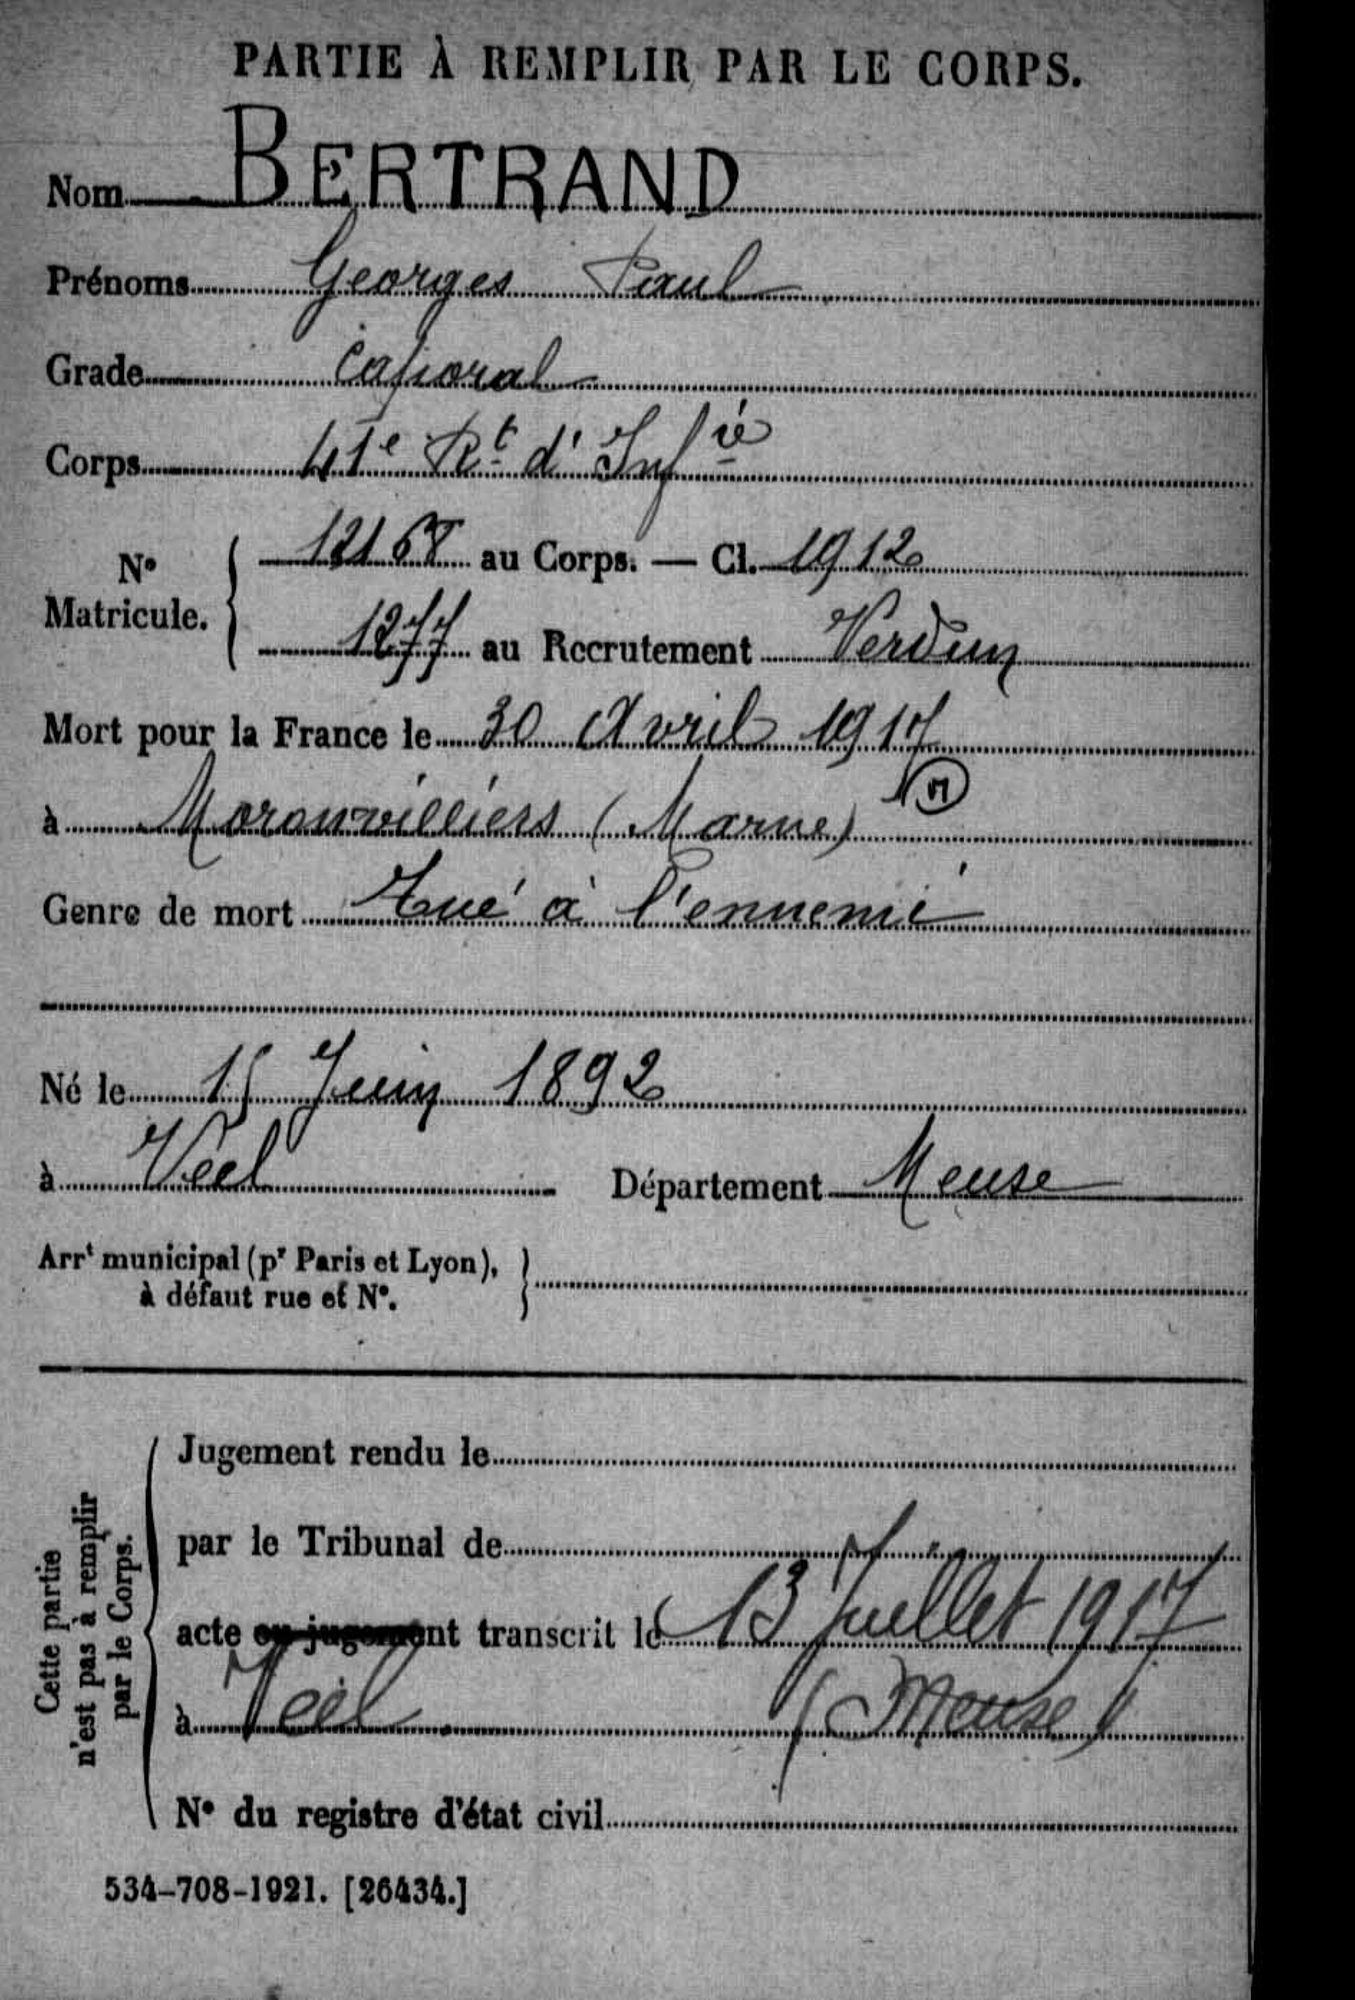 PARTIE À REMPLIR PAR LE CORPS.
Nom BERTRAND
Prénoms Georges Paul
Grade Caporal
Corps 41e Rt d'Infie
No Matricule. { 12168 au Corps. — Cl. 1912
1277 au Recrutement Verdun
Mort pour la France le 30 Avril 1917
à Moronvilliers (Marne)
Genre de mort Tué à l'ennemi
Né le 15 Juin 1892
à Véel Département Meuse
Arrt municipal (pr Paris et Lyon), à défaut rue et No. }
Cette partie n'est pas à remplir par le Corps.
Jugement rendu le
par le Tribunal de
acte ou jugement transcrit le 13 Juillet 1917
à Véel (Meuse)
No du registre d'état civil
534-708-1921. [26434.]